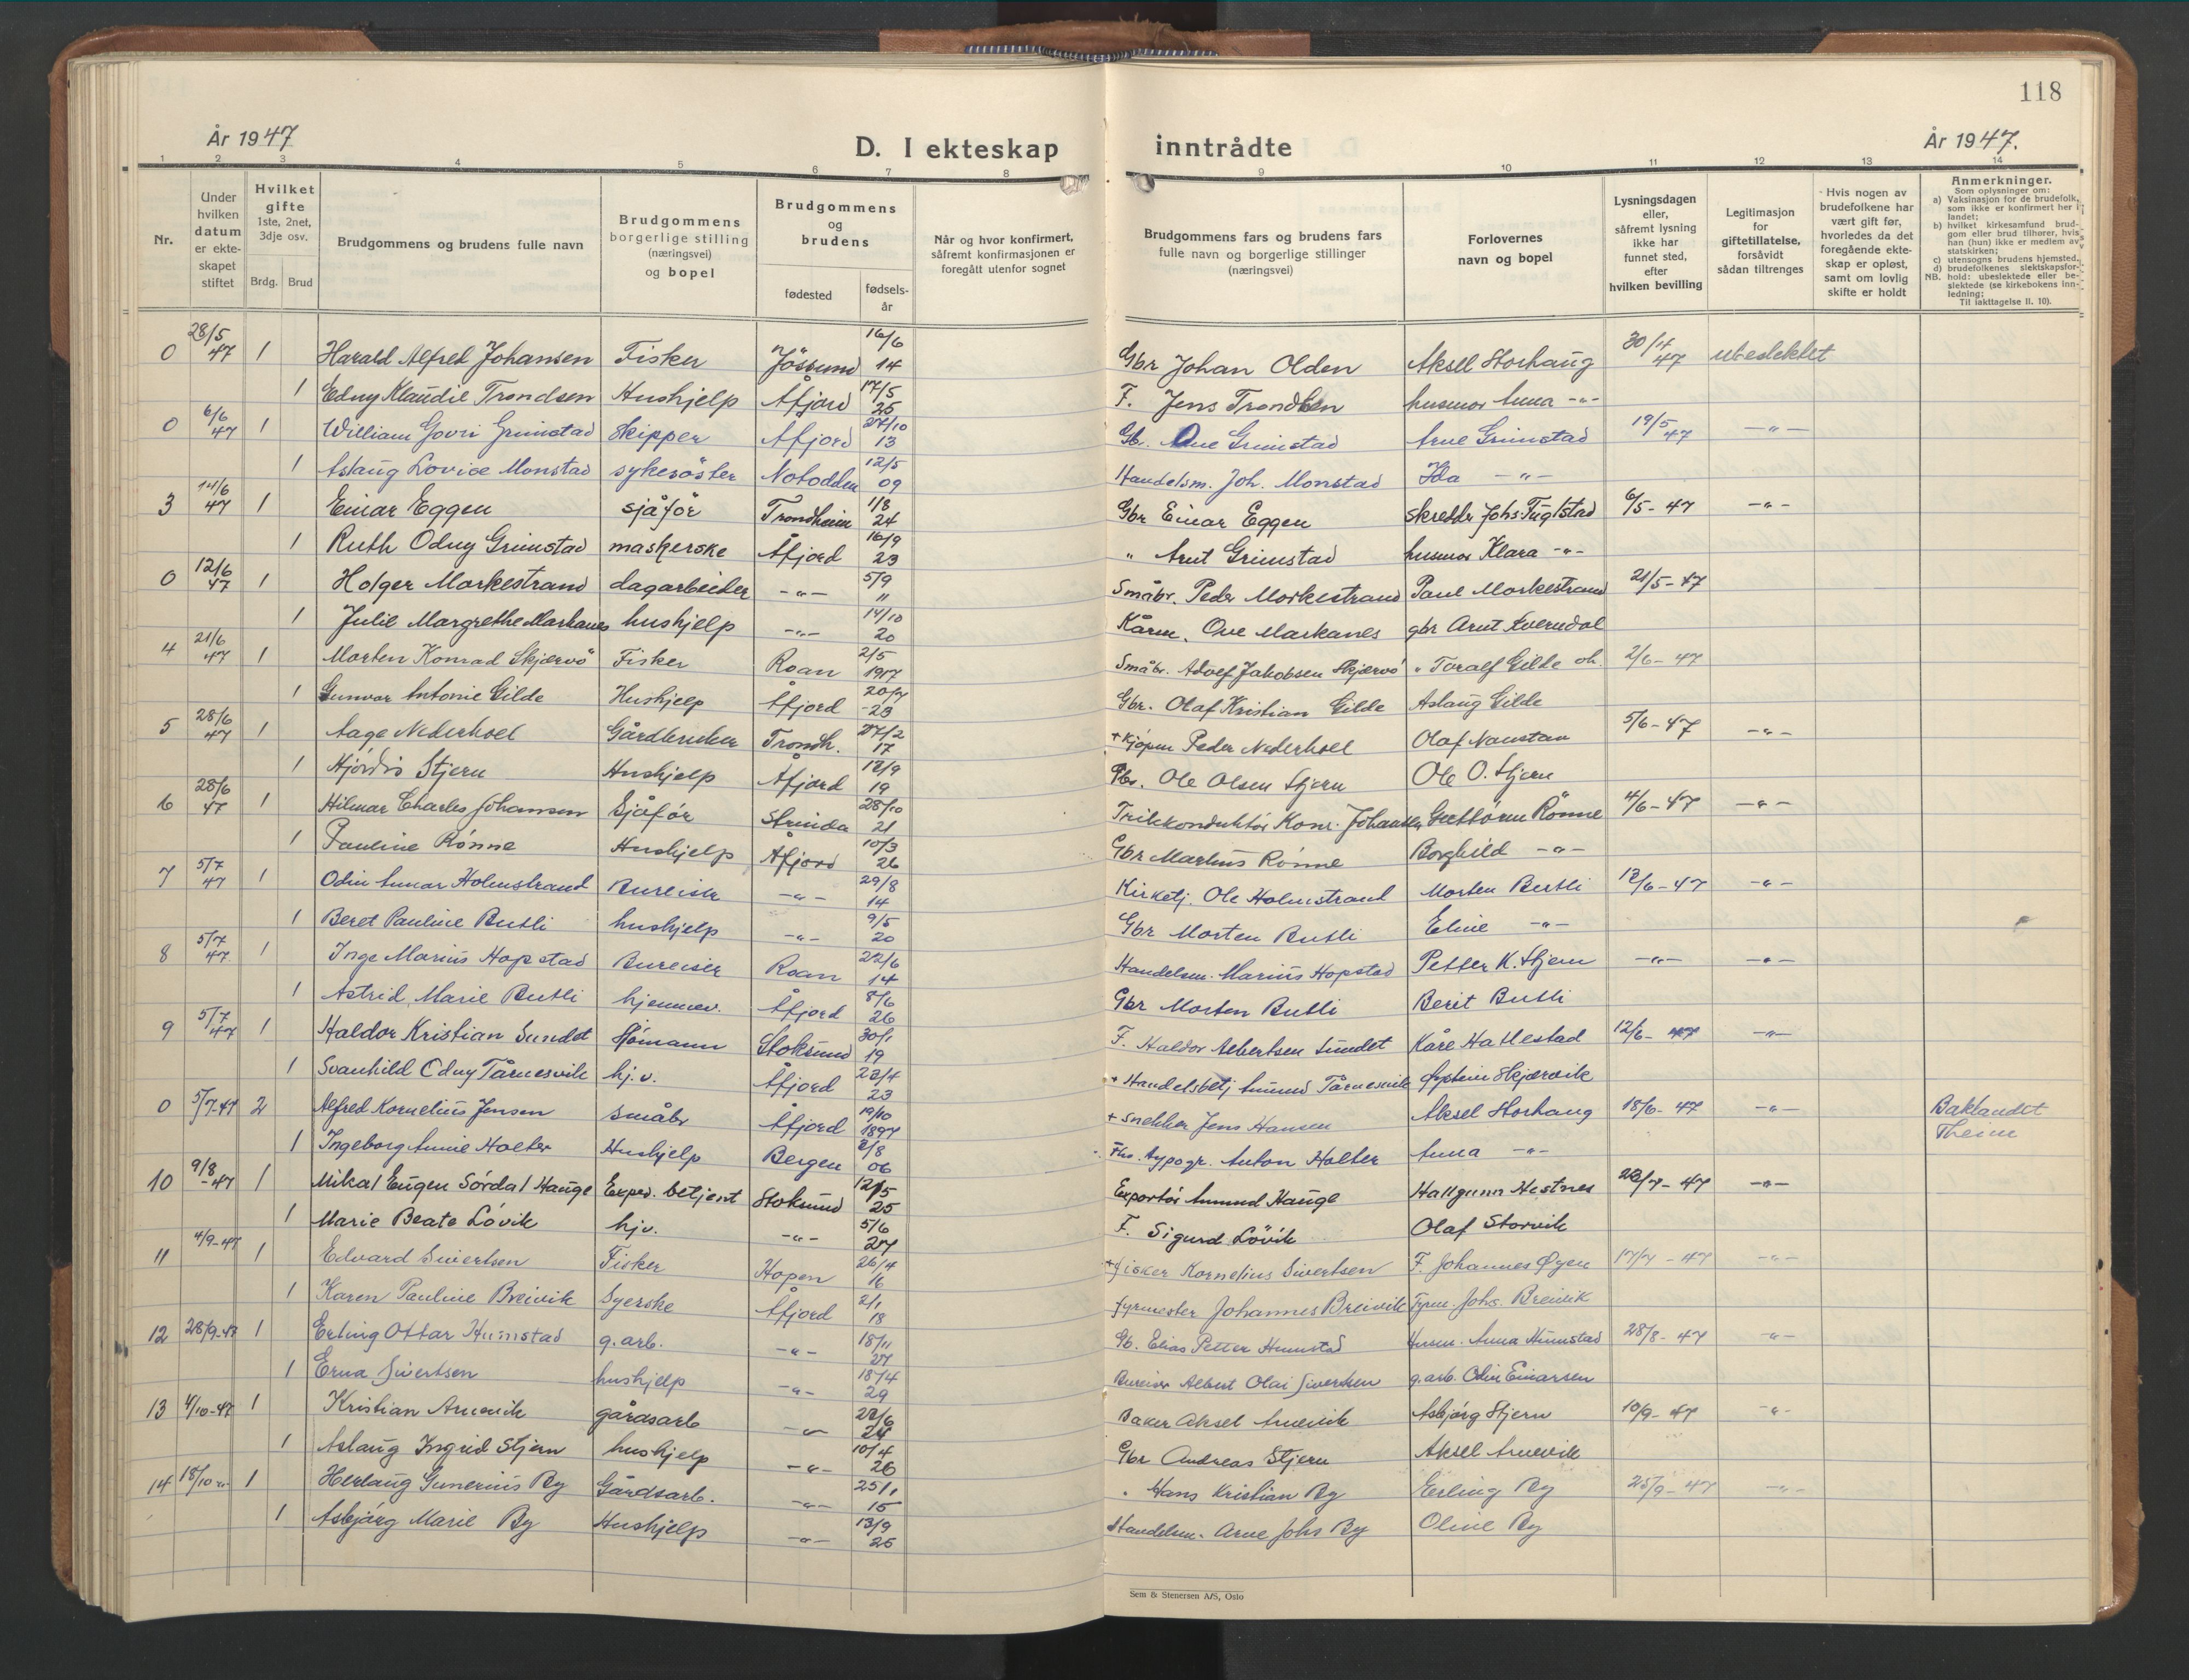 118
År 1947
D. I ekteskap inntrådte
År 1947.
1 2 3 4 5 6 7 8 9 10 11 12 13 14
Nr.
Under hvilken datum er ekteskapet stiftet
Hvilket gifte 1ste, 2net, 3dje osv.
Brdg. Brud
Brudgommens og brudens fulle navn
Brudgommens borgerlige stilling (næringsvei) og bopel
Brudgommens og brudens
fødested
fødselsår
Når og hvor konfirmert, såfremt konfirmasjonen er foregått utenfor sognet
Brudgommens fars og brudens fars fulle navn og borgerlige stillinger (næringsvei)
Forlovernes navn og bopel
Lysningsdagen eller, såfremt lysning ikke har funnet sted, efter hvilken bevilling
Legitimasjon for giftetillatelse, forsåvidt sådan tiltrenges
Hvis nogen av brudefolkene har vært gift før, hvorledes da det foregående ekteskap er opløst, samt om lovlig skifte er holdt
Anmerkninger.
Som oplysninger om:
a) Vaksinasjon for de brudefolk, som ikke er konfirmert her i landet;
b) hvilket kirkesamfund brudgom eller brud tilhører, hvis han (hun) ikke er medlem av statskirken;
c) utensogns brudens hjemsted,
d) brudefolkenes slektskapsforhold: ubeslektede eller beslektede (se kirkebokens innledning;
NB.
Til iakttagelse II. 10).
0 28/5 47 1 Harald Alfred Johansen Fisker Jössund 16/6 14 Gbr Johan Olden Aksel Storhaug 30/4 47 ubeslektet
1 Edny Klaudie Trondsen Hushjelp Åfjord 17/5 25 F. Jens Trondsen husmor Anna -"-
0 6/6 47 1 William Govri Grimstad Skipper Åfjord 27/10 13 Gb. Ove Grimstad Arne Grimstad 19/5 47 -"-
1 Aslaug Lovise Monstad sykesöster Notodden 12/5 09 Handelsm. Joh. Monstad Ida -"-
3 14/6 47 1 Einar Eggen sjåför Trondheim 1/8 24 Gbr Einar Eggen skredder Johs Fuglstad 6/5-47 -"-
1 Ruth Odny Grimstad maskerske Åfjord 16/9 23 " Arnt Grimstad husmor Klara -"-
0 12/6 47 1 Holger Morkestrand dagarbeider -"- 5/9 11 Småbr. Peder Morkestrand Paul Morkestrand 21/5-47
1 Julie Margrethe Markanes hushjelp -"- 14/10 20 Kårm. Ove Markanes gbr Arnt Sverndal
4 21/6 47 1 Morten Konrad Skjærvö Fisker Roan 2/5 1917 Småbr. Adolf Jakobsen Skjærvö " Toralf Gilde 2/6-47
1 Gunvor Antonie Gilde Hushjelp Åfjord 20/7 -23 Gbr. Olaf Kristian Gilde Aslaug Gilde
5 28/6 47 1 Aage Nederhoel Gårdbruker Trondh. 27/2 17 + Kjøpm Peder Nederhoel Olaf Naustan 5/6-47 -"-
1 Hjördis Stjern Hushjelp Åfjord 12/9 19 Gbr. Ole Olsen Stjern Ole O. Stjern
6 28/6 47 1 Hilmar Charles Johansen Sjåför Strinda 28/10 21 Trikkonduktör Konr. Johansen Guttorm Rönne 4/6-47 -"-
1 Pauline Rönne Hushjelp Åfjord 10/3 26 Gbr Martius Rönne Borghild -"-
7 5/7 47 1 Odin Annar Holmstrand Bureiser -"- 29/8 14 Kirketj. Ole Holmstrand Morten Butli 12/6-47 -"-
1 Beret Pauline Butli hushjelp -"- 9/5 20 Gbr Morten Butli Eline -"-
8 5/7 47 1 Inge Marius Hopstad Bureiser Roan 22/6 14 Handelsm. Marius Hopstad Petter K. Stjern -"- -"-
1 Astrid Marie Butli hjemmev. Åfjord 8/6 26 Gbr Morten Butli Berit Butli
9 5/7 47 1 Haldor Kristian Sundet Sjömann Stoksund 30/1 19 F. Haldor Albertsen Sundet Kåre Hatlestad 12/6-47 -"-
1 Svanhild Odny Tårnesvik hj.v. Åfjord 22/4 23 + Handelsbetj Amund Tårnesvik Øystein Skjærvik
0 5/7-47 2 Alfred Kornelius Jensen Småbr Åfjord 19/10 1897 + Snekker Jens Hansen Aksel Storhaug 18/6-47 -"- Baklandet Theim
1 Ingeborg Annie Holter Hushjelp Bergen 2/8 06 typogr. Anton Holter Anna -"-
10 9/8-47 1 Mikal Eugen Sördal Hauge Exped. betjent Stoksund 12/5 25 Exportör Amund Hauge Hallgunn Hestnes 22/7-47 -"-
1 Marie Beate Lövik hjv. -"- 5/6 27 F. Sigurd Lövik Olaf Storvik
11 4/9-47 1 Edvard Sivertsen Fisker Hopen 26/4 16 + fisker Kornelius Sivertsen F. Johannes Øyen 17/7-47 -"-
1 Karen Pauline Breivik Syerske Åfjord 2/1 18 fyrmester Johannes Breivik Fyrm. Johs. Breivik
12 28/9-47 1 Erling Ottar Humstad g.arb. -"- 18/11 27 Gb. Elias Petter Humstad Husm. Anna Humstad 28/8-47 -"-
1 Erna Sivertsen hushjelp -"- 18/4 29 Bureiser Albert Olai Sivertsen g.arb. Odin Einarsen
13 4/10-47 1 Kristian Arnevik gårdsarb -"- 22/6 24 Baker Aksel Arnevik Asbjörg Stjern 10/9-47 -"-
1 Aslaug Ingrid Stjern hushjelp -"- 10/4 26 Gbr Andreas Stjern Aksel Arnevik
14 18/10 1 Herlaug Gunerius By Gårdsarb. -"- 25/1 15 " Hans Kristian By Erling By 25/9-47 -"-
1 Asbjörg Marie By Hushjelp -"- 13/9 25 Handelsm. Arne Johs By Oline By
Sem & Stenersen A/S, Oslo